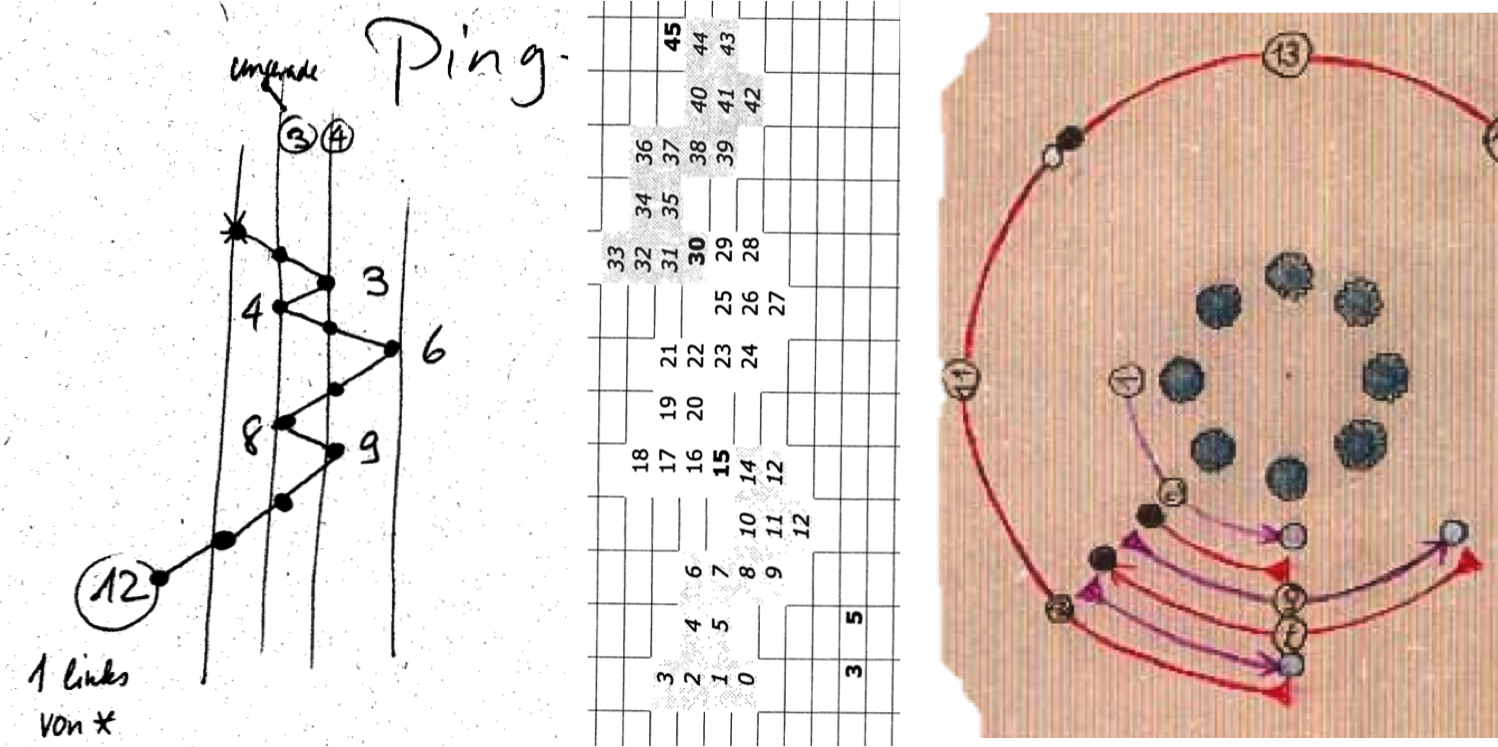 Ping-
ungerade
3 4
3
4
6
8
9
12
1 links
von *
45 44 43
40 41 42
36 37 38 39
34 35
33 32 31 30 29 28
25 26 27
21 22 23 24
19 20
18 17 16 15 14 12
10 11 12
6 7 8 9
4 5 5
3 2 1 0 3
13
11
1
9